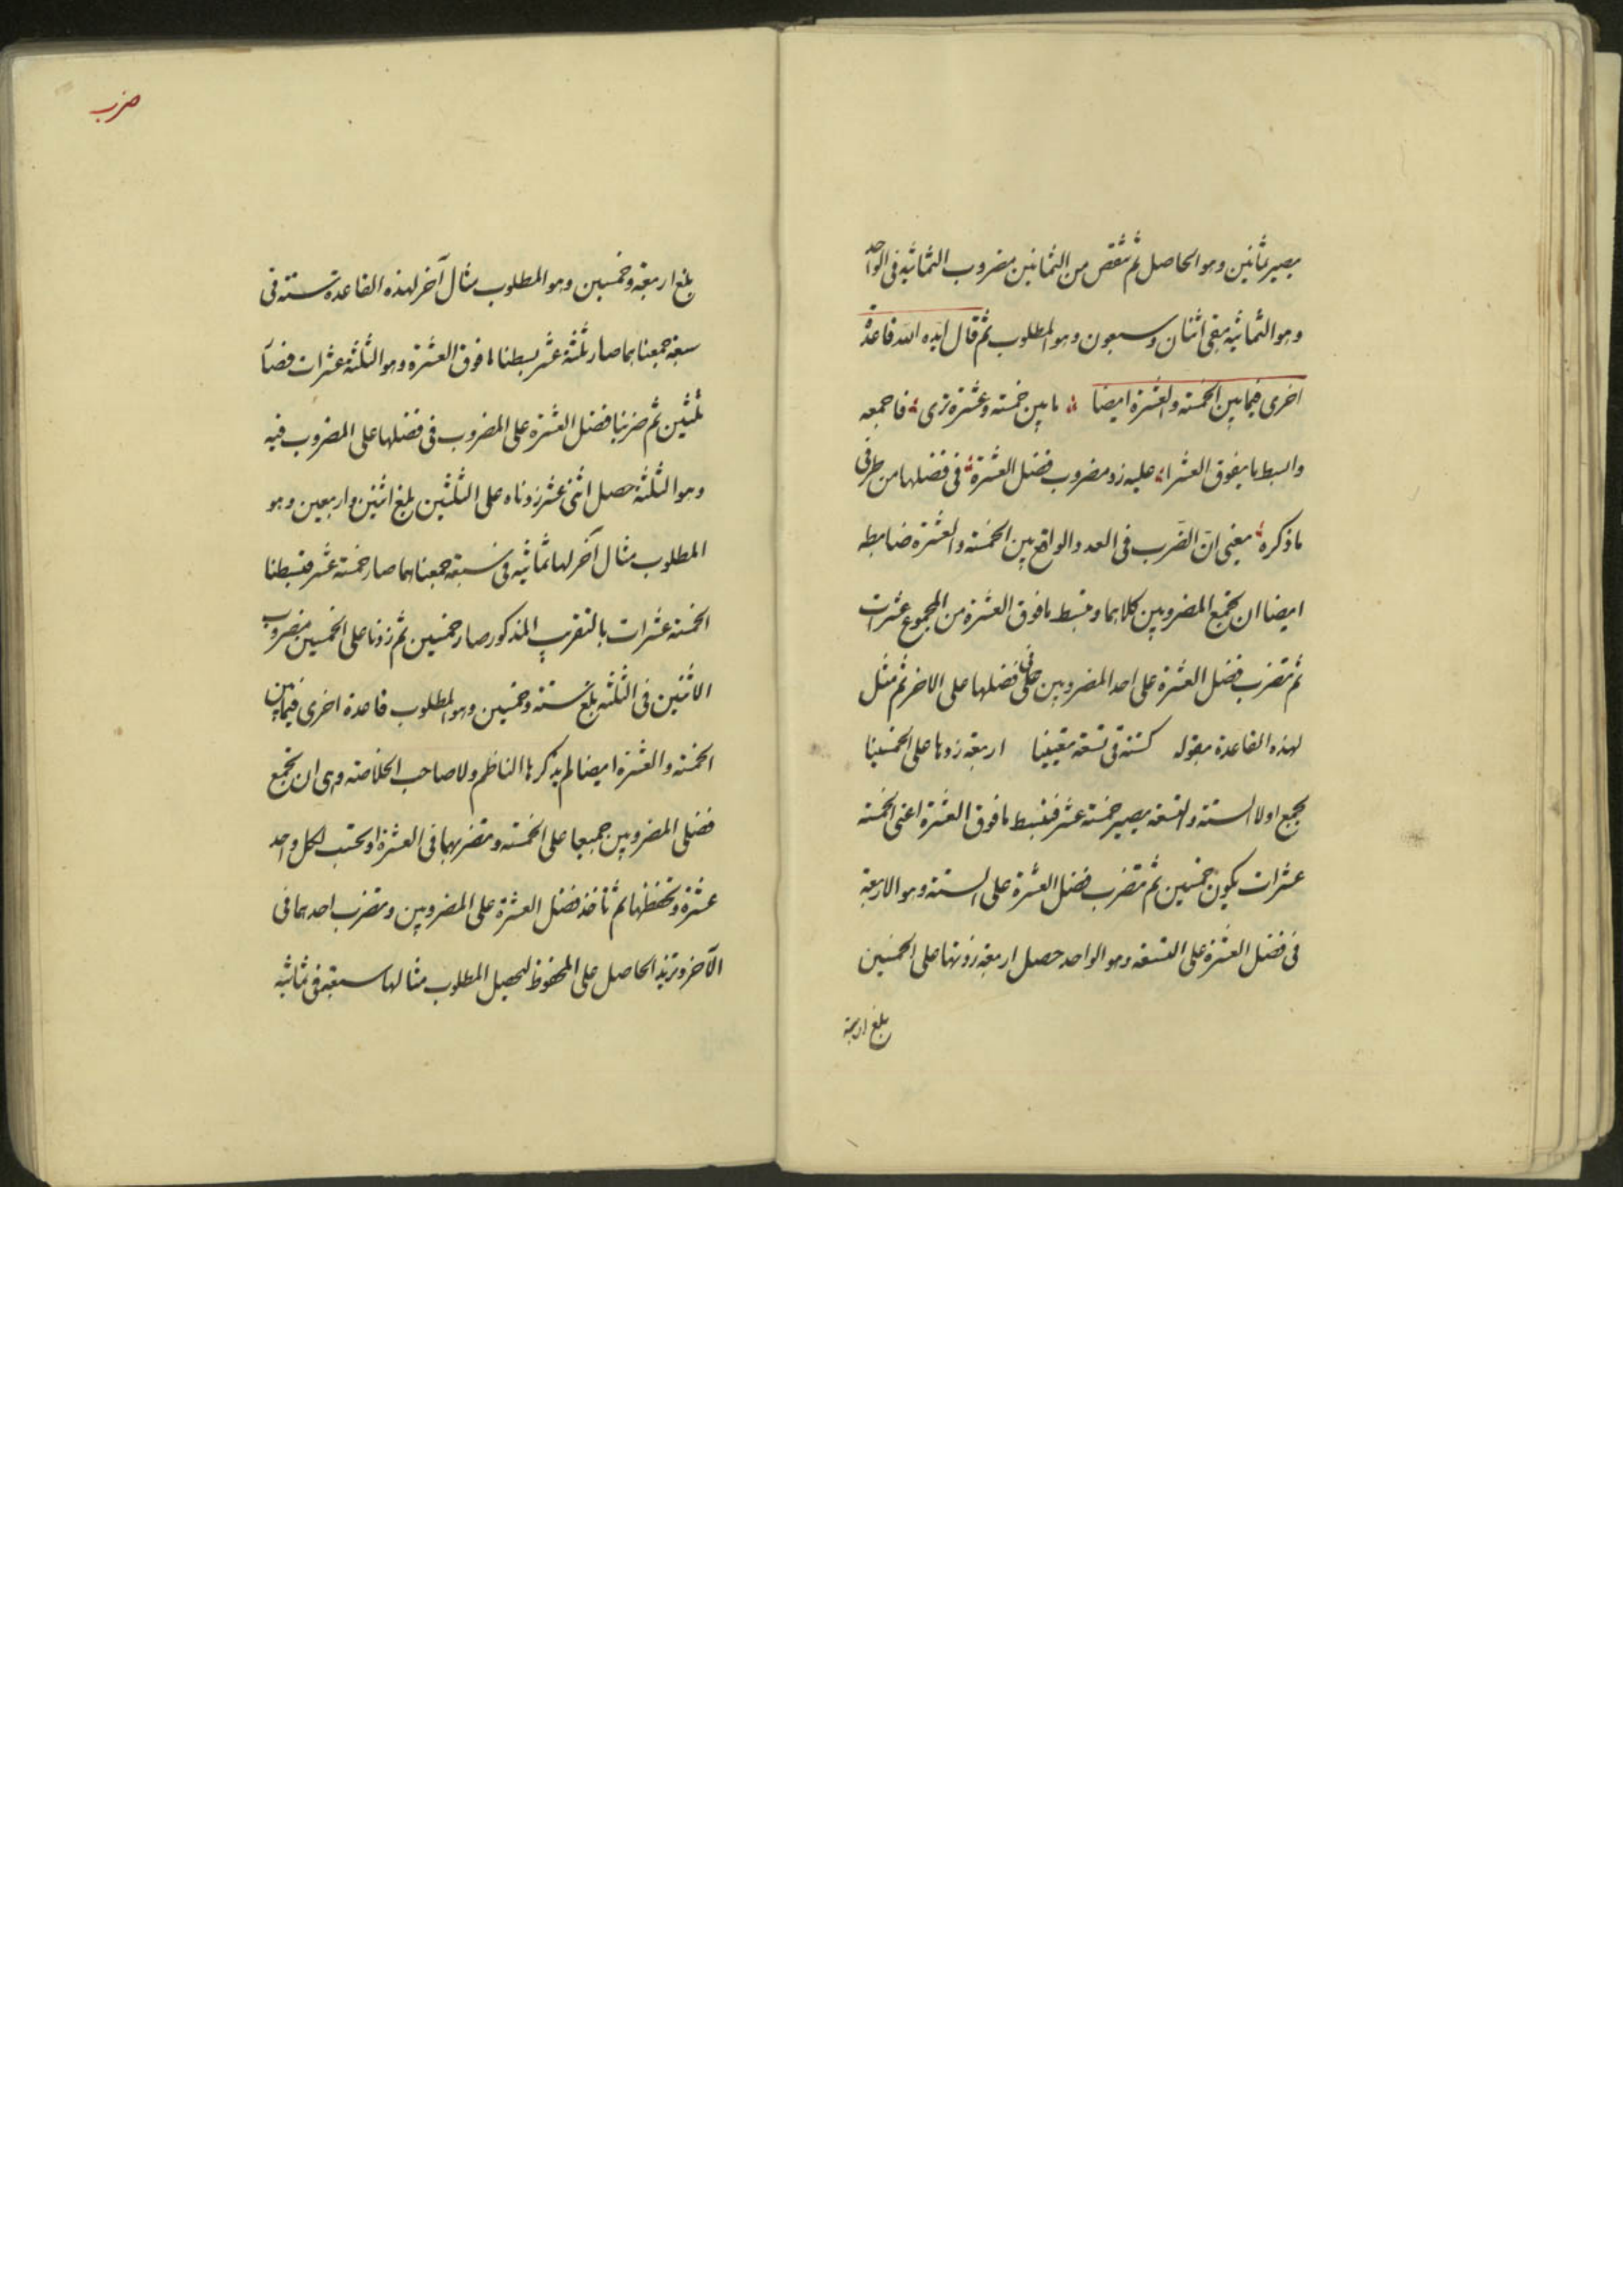 يصير ثمانين وهو الحاصل ثم تنقص من الثمانين مضروب الثمانية في الواحد
وهو الثمانية يبقى اثنان وسبعون وهو المطلوب ثم قال ايده الله قاعدة
اخرى فيما بين الخمسة والعشرة ايضا ما بين خمسة وعشرة ترى فاجمعه
وابسط ما يفوق العشرا عليه زد مضروب فضل العشرة في فضلها من طرفي
ما ذكره يعني ان الضرب في العدد الواقع بين الخمسة والعشرة ضابطه
ايضا ان تجمع المضروبين كلاهما وتبسط ما فوق العشرة من المجموع عشرات
ثم تضرب فضل العشرة على احد المضروبين في فضلها على الاخر ثم مثل
لهذه القاعدة بقوله كستة في تسعة يقينا اربعة زدها على الخمسينا
تجمع اولا الستة والتسعة يصير خمسة عشر فتبسط ما فوق العشرة اعني الخمسة
عشرات يكون خمسين ثم تضرب فضل العشرة على الستة وهو الاربعة
في فضل العشرة على التسعة وهو الواحد حصل اربعة زدتها على الخمسين
بلغ اربعة
ضرب
بلغ اربعة وخمسين وهو المطلوب مثال آخر لهذه القاعدة ستة في
سبعة جمعناهما صار ثلثة عشر بسطنا ما فوق العشرة وهو الثلثة عشرات فصار
ثلثين ثم ضربنا فضل العشرة على المضروب في فضلها على المضروب فيه
وهو الثلثة حصل اثنى عشر زدناه على الثلثين بلغ اثنين واربعين وهو
المطلوب مثال آخر لها ثمانية في سبعة جمعناهما صار خمسة عشر فبسطنا
الخمسة عشرات بالتقريب المذكور صار خمسين ثم زدنا على الخمسين مضروب
الاثنين في الثلثة بلغ ستة وخمسين وهو المطلوب قاعدة اخرى فيما بين
الخمسة والعشرة ايضا لم يذكرها الناظم ولا صاحب الخلاصة وهى ان تجمع
فضلى المضروبين جميعا على الخمسة وتضربهما في العشرة او تحتسب لكل واحد
عشرة وتحفظها ثم تأخذ فضل العشرة على المضروبين وتضرب احدهما في
الآخر وتزيد الحاصل على المحفوظ ليحصل المطلوب مثالها سبعة في ثمانية